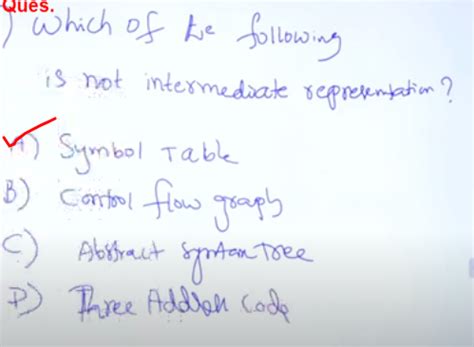 Ques.
) Which of the following
is not intermediate representation?
A) Symbol Table
B) Control flow graph
C) Abstract Syntax Tree
D) Three Address Code